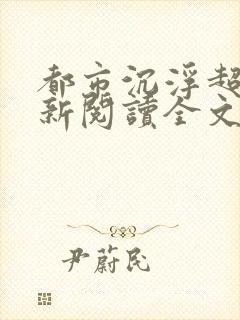 都市沉浮超
新閱讀全文
尹蔚民